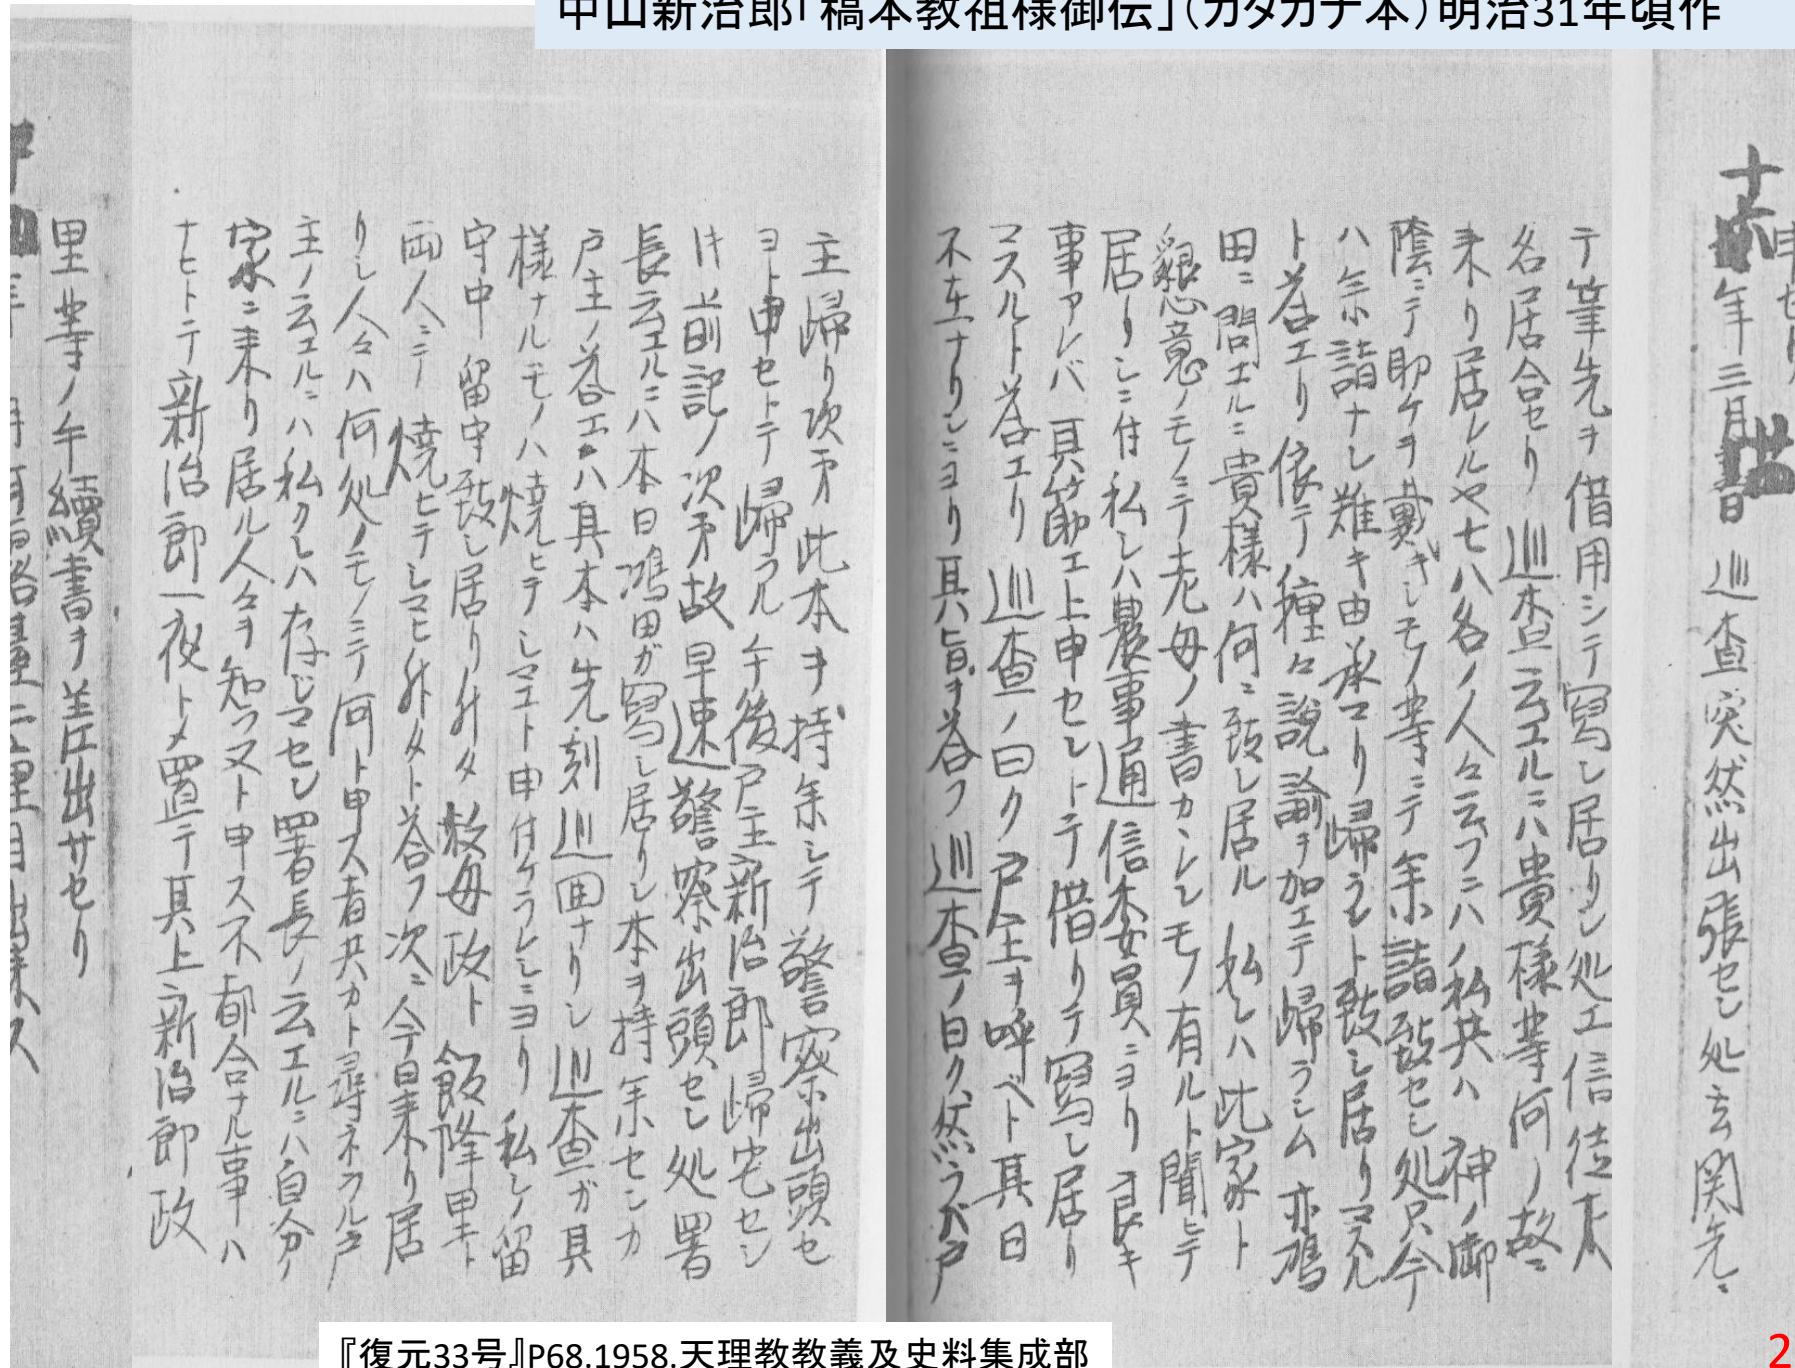 中山新治郎「稿本教祖様御伝」(カタカナ本)明治31年頃作
申セリ
十六年三月 日巡査突然出張セシ処玄関先ニ
テ筆先ヲ借用シテ写シ居リシ処エ信徒 人
名居合セリ巡査云エルニハ貴様等何ノ故ニ
来リ居レルヤ七八名ノ人々云フニハノ私共ハ神ノ御
陰ニテ助ケヲ戴キシモノ等ニテ参詣致セシ処只今
ハ参詣ナシ難キ由承マリ帰ラント致シ居リマスル
ト答エリ依テ種々説諭ヲ加エテ帰ラシム亦鴻
田ニ問エルニ貴様ハ何ニ致シ居ル私シハ此家ト
懇意ノモノニテ老母ノ書カレシモノ有ルト聞ヒテ
居リシニ付私シハ農事通信委員ニヨリ良キ
事アレバ其筋エ上申セントテ借リテ写シ居リ
マスルト答エリ巡査ノ曰ク戸主ヲ呼ベト其日
不在ナリシニヨリ其旨ヲ答フ巡査ノ曰ク然ラバ戸
主帰リ次第此本ヲ持参シテ警察出頭セ
ヨト申セトテ帰ラル午後戸主新治郎帰宅セシ
ニ付前記ノ次第故早速警察出頭セシ処署
長云エルニハ本日鴻田ガ写シ居リシ本ヲ持参セシカ
戸主ノ答エハ其本ハ先刻巡回ナリシ巡査ガ其
様ナルモノハ焼ヒテシマエト申付ケラレシニヨリ私シノ留
守中留守致シ居リ升タ叔母政ト飯降里ト
両人ニテ焼ヒテシマヒ升タト答フ次ニ今日来リ居
リシ人々ハ何処ノモノニテ何ト申ス者共カト尋ネラル戸
主ノ云エルニハ私クシハ存ジマセン署長ノ云エルニハ自分ノ
家ニ来リ居ル人々ヲ知ラヌト申ス不都合ナル事ハ
ナヒトテ新治郎一夜トメ置テ其上新治郎政
里等ノ午続書ヲ差出サセリ
『復元33号』P68.1958.天理教教義及史料集成部
2